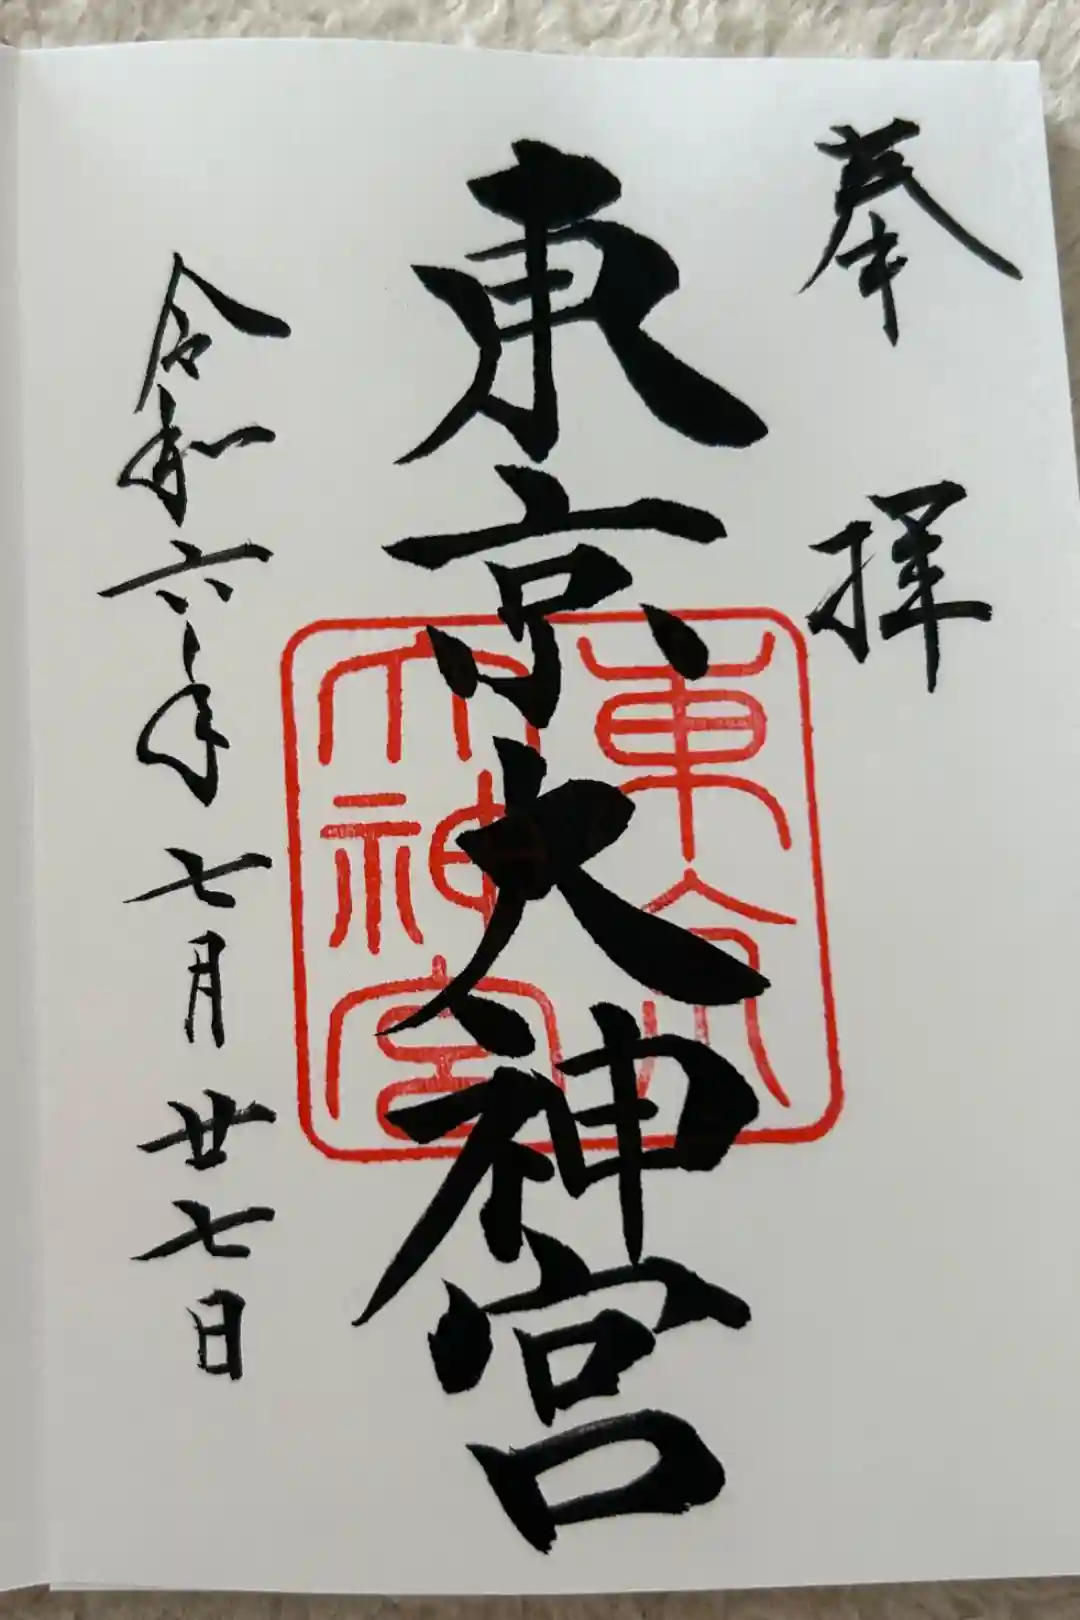 奉拝
東京大神宮
東京
大神宮
令和六年七月廿七日